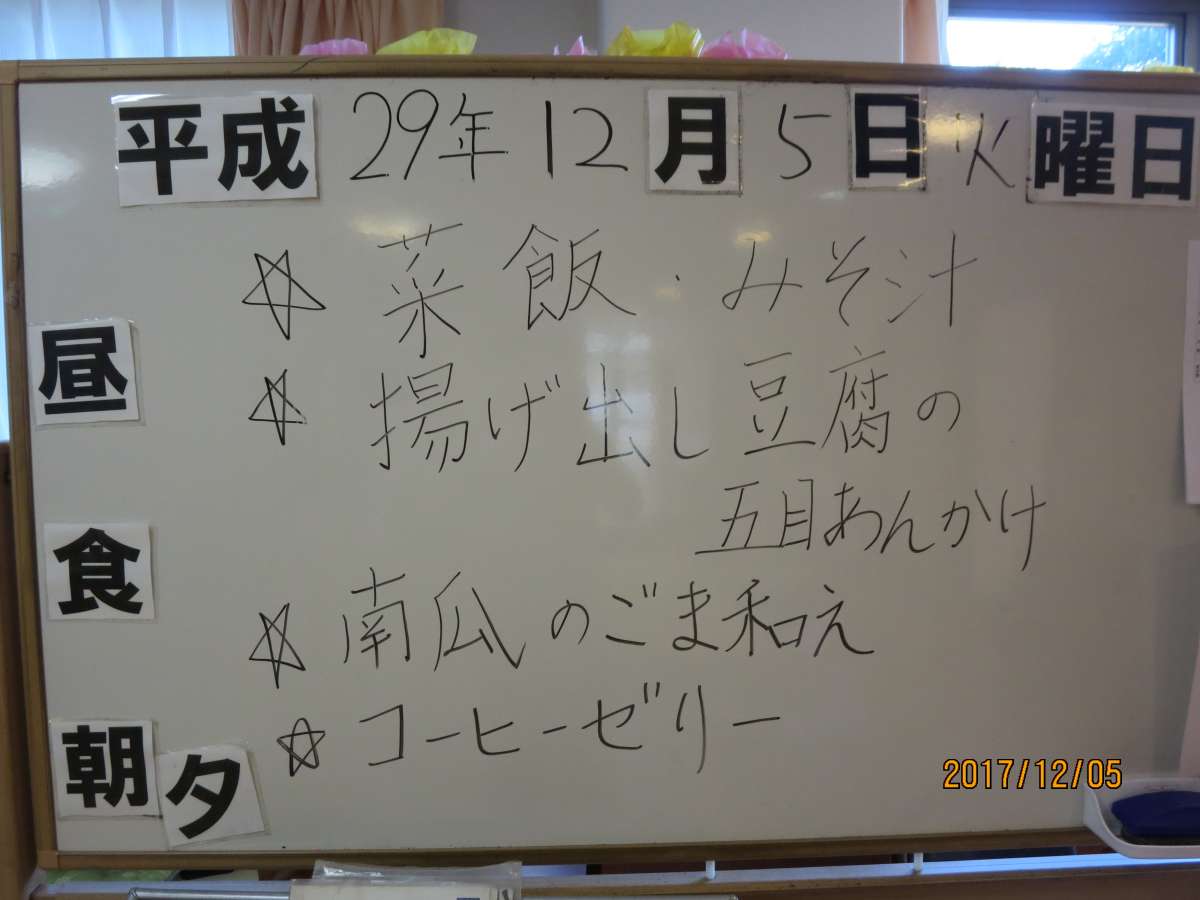 平成29年12月5日火曜日
☆菜飯・みそ汁
☆揚げ出し豆腐の
五目あんかけ
☆南瓜のごま和え
☆コーヒーゼリー
昼食
朝夕
2017/12/05